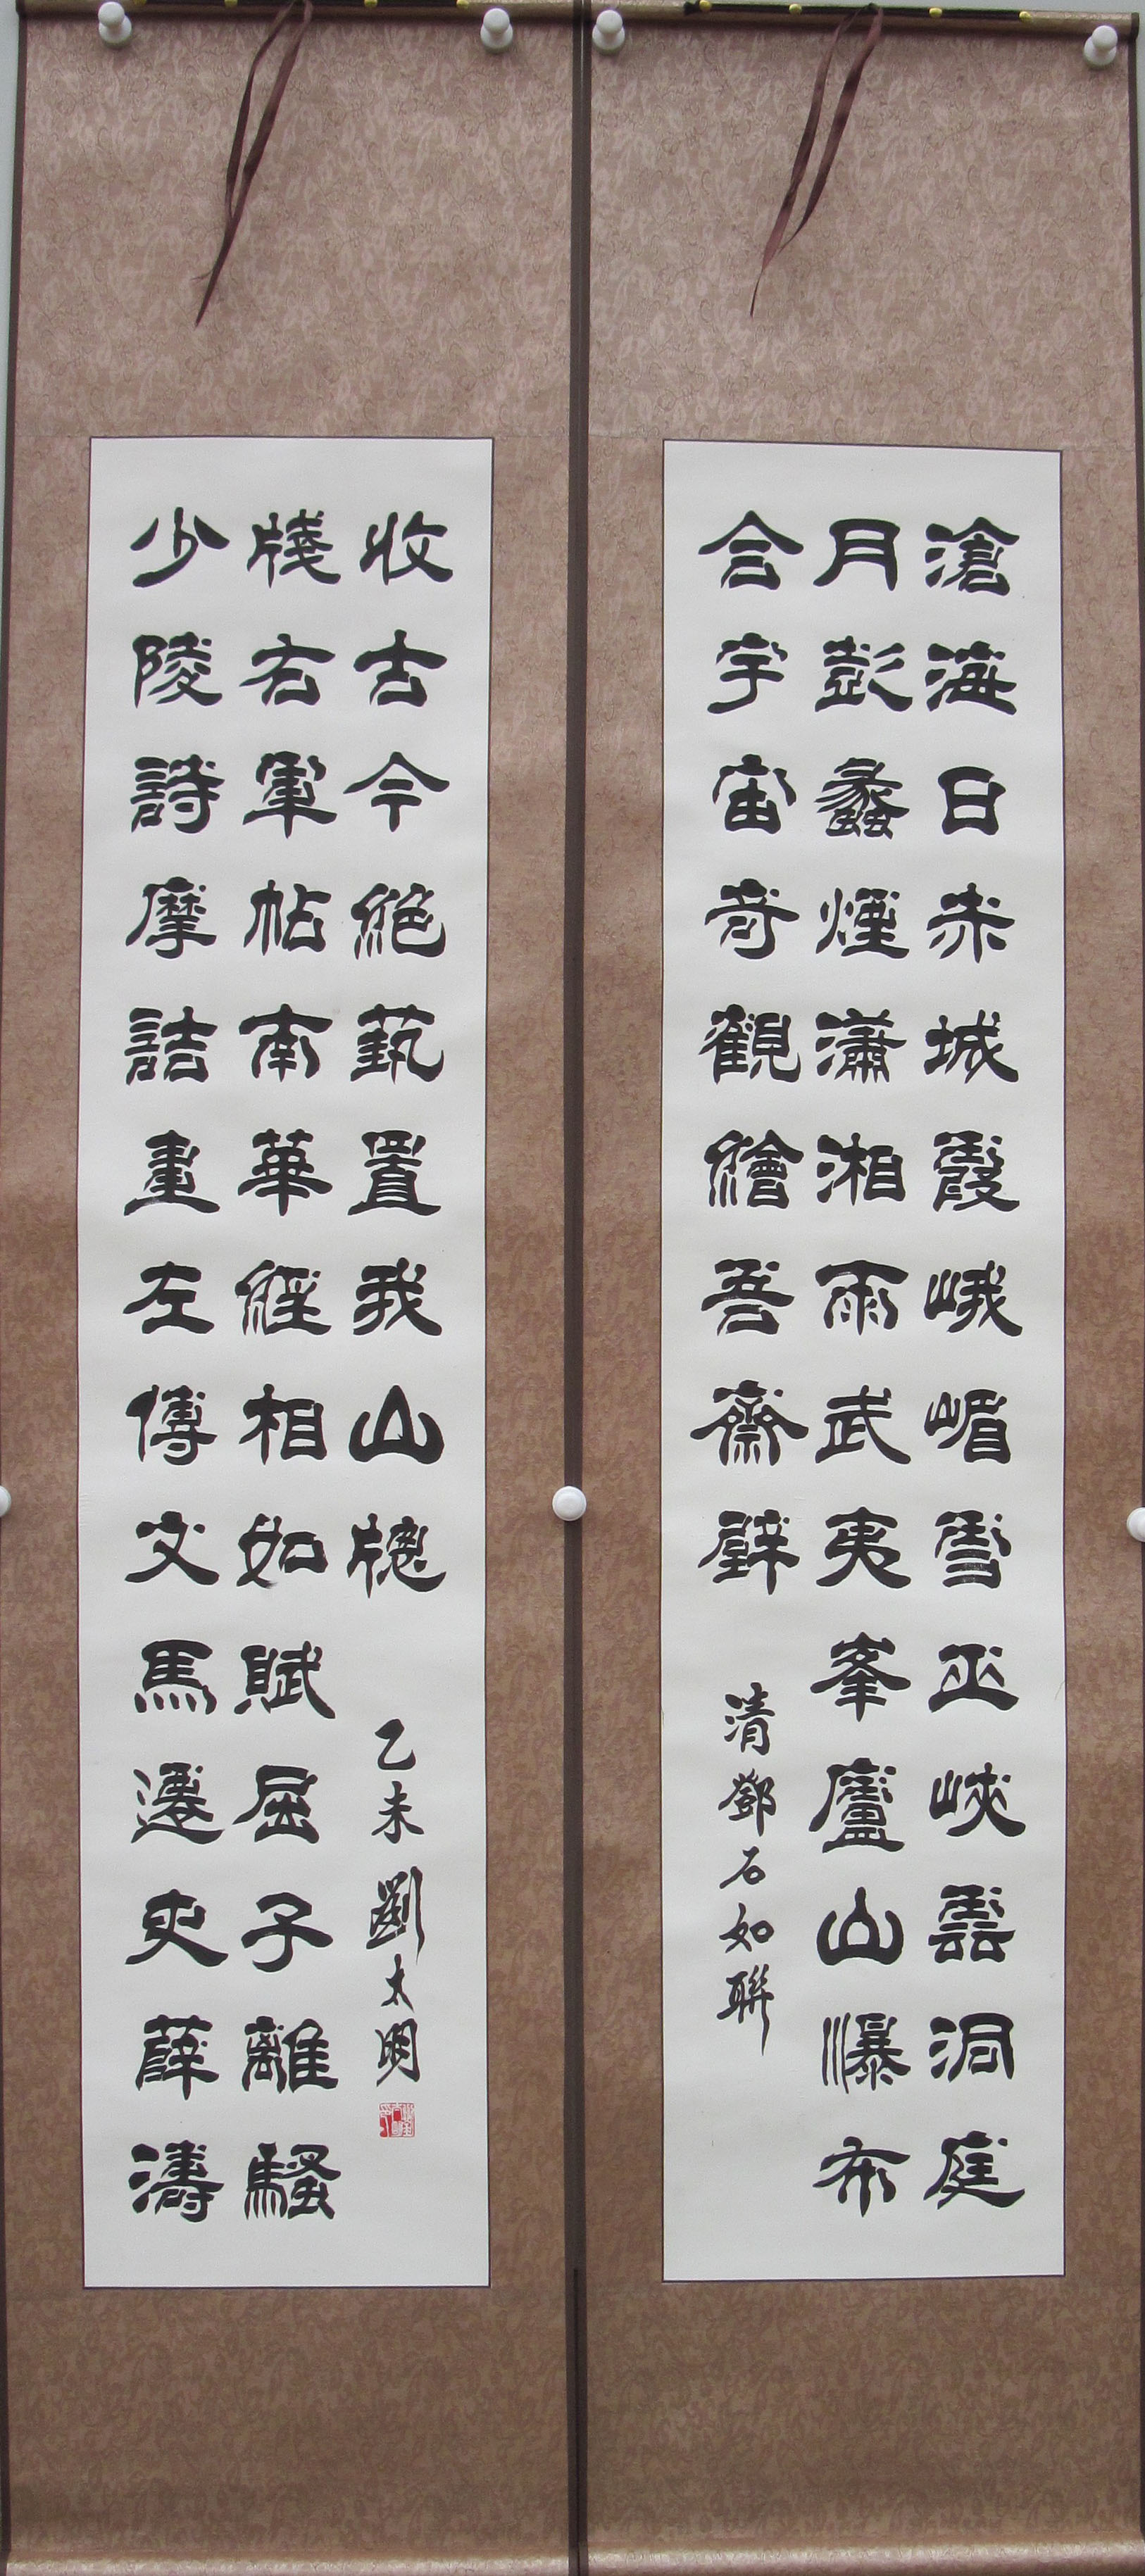 滄海日赤城霞峨嵋雪巫峽雲洞庭
月彭蠡煙瀟湘雨武夷峯廬山瀑布
合宇宙奇觀繪吾齋壁
清鄧石如聯
少陵詩摩詰畫左傳文馬遷史薛濤
牋右軍帖南華經相如賦屈子離騷
收古今絕蓺置我山牕
乙未劉太明